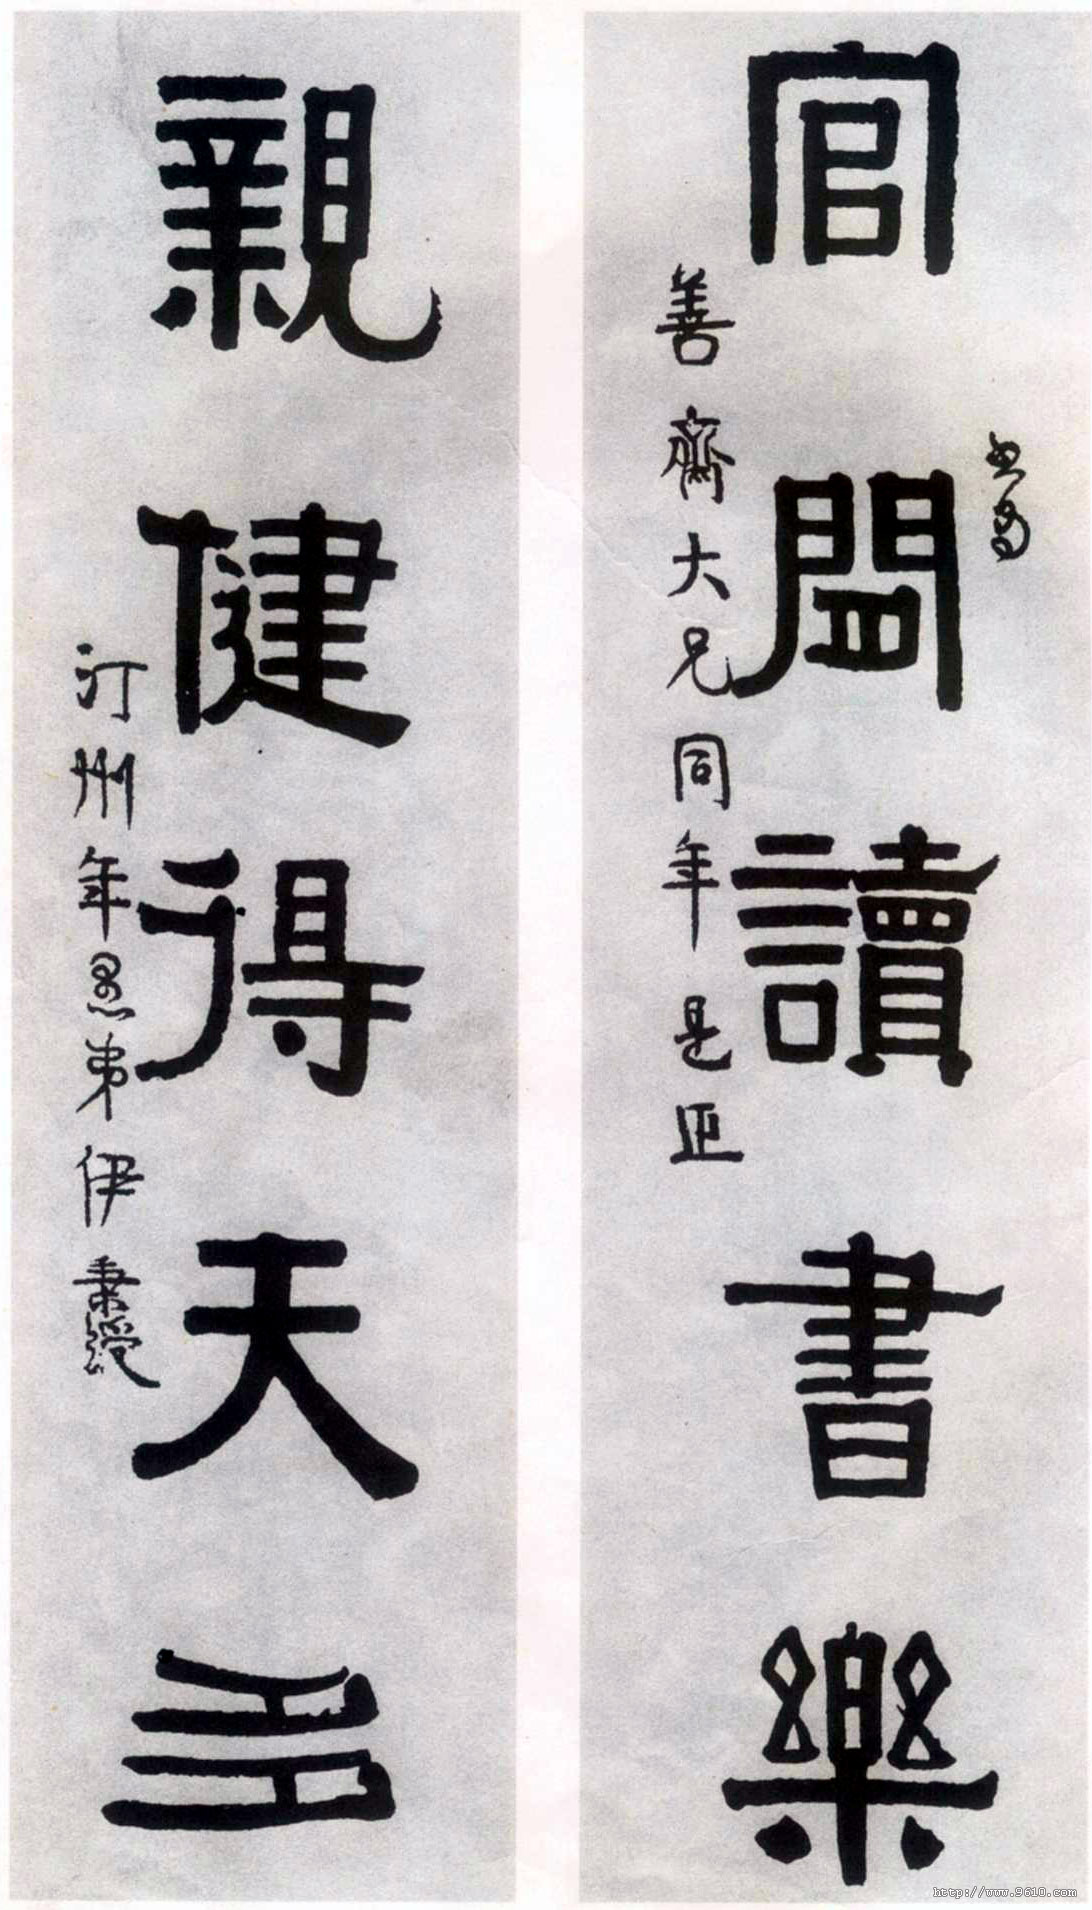 書爲
官閒讀書樂
善齋大兄同年是正
親健得天多
汀州年愚弟伊秉綬
http://www.9610.com